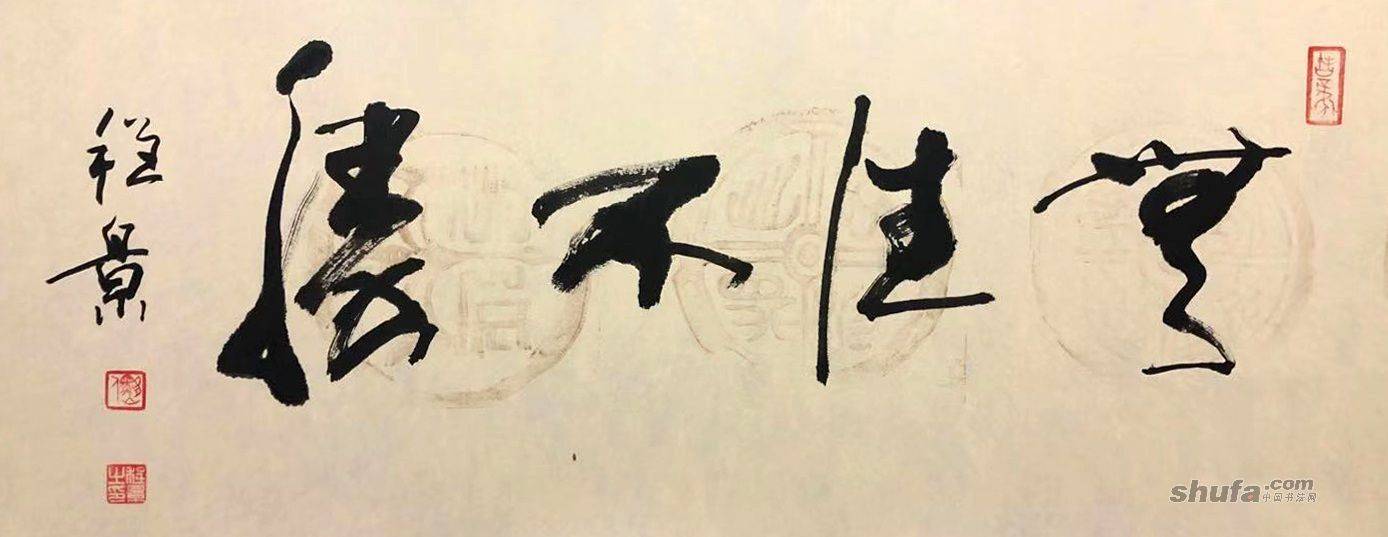 無往不勝
程景
shufa.com
中国书法网